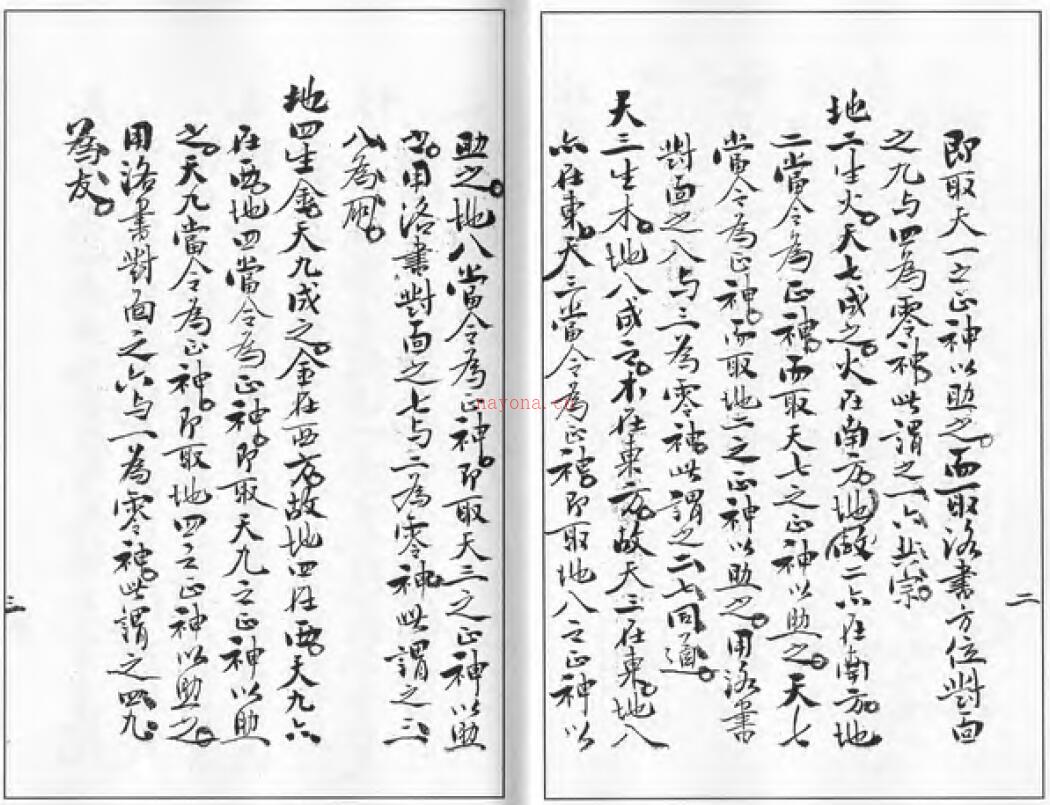 即取天一之正神以助之。而取洛書方位對面
之九与四為零神。此謂之一六共宗。
地二生火。天七成之。火在南方。地故二亦在南方。地
二當令為正神。而取天七之正神以助之。天七
當令為正神。而取地二之正神以助之。用洛書
對面之八与三為零神。此謂之二七同道。
天三生木。地八成之。木在東方。故天三在東。地八
亦在東。天三當令為正神。即取地八之正神以
二
助之。地八當令為正神。即取天三之正神以助
之。用洛書對面之七与二為零神。此謂之三
八為朋。
地四生金。天九成之。金在西方。故地四在西。天九亦
在西。地四當令為正神。即取天九之正神以助
之。天九當令為正神。即取地四之正神以助之。
用洛書對面之六与一為零神。此謂之四九
為友。
三
nayona.cn